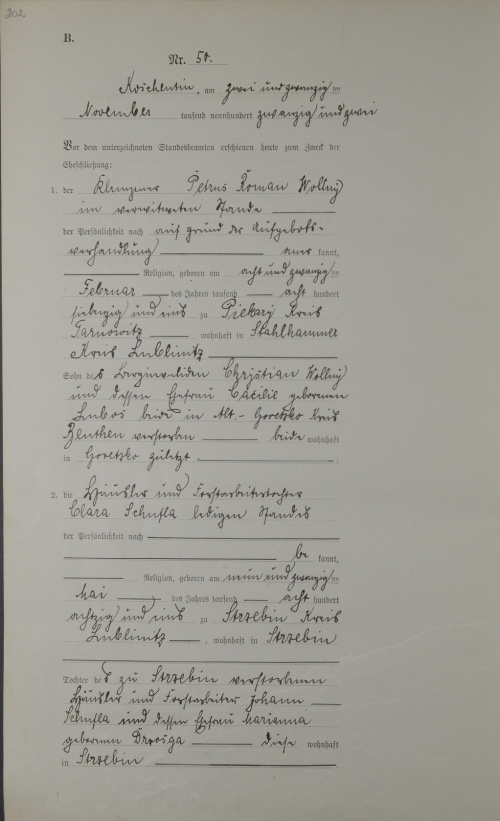 202
B.
Nr. 50.
Koschentin, am zwei und zwanzig ten
November tausend neunhundert zwanzig und zwei
Vor dem unterzeichneten Standesbeamten erschienen heute zum Zweck der
Eheschließung:
1. der Klempner Petrus Roman Wollny
im verwitweten Stande
der Persönlichkeit nach auf grund der Aufgebots-
verhandlung aner kannt,
Religion, geboren am acht und zwanzig ten
Februar des Jahres tausend acht hundert
siebenzig und eins zu Piekary Kreis
Tarnowitz wohnhaft in Stahlhammer
Kreis Lublinitz
Sohn des Berginvaliden Christian Wollny
und dessen Ehefrau Cäcilie geborenen
Lubos beide in Alt- Kreis
Beuthen verstorben beide wohnhaft
in zuletzt ;
2. die Häusler und Forstarbeitertochter
Clara ledigen Standes
der Persönlichkeit nach
be kannt,
Religion, geboren am neun und zwanzig ten
Mai des Jahres tausend acht hundert
achtzig und eins zu Strzebin Kreis
Lublinitz , wohnhaft in Strzebin
Tochter des zu Strzebin verstorbenen
Häusler und Forstarbeiter Johann
und dessen Ehefrau Marianna
geborenen diese wohnhaft
in Strzebin